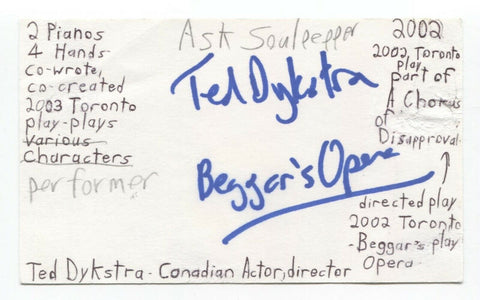 2 Pianos
4 Hands
co-wrote,
co-created
2003 Toronto
play-plays
Various
Characters
performer
Ask Soulpepper
Ted Dykstra
Beggar's Opera
2002
2002 Toronto
play
part of
A Chorus
of
Disapproval
directed play
2002 Toronto
-Beggar's play
Opera
Ted Dykstra - Canadian Actor, director